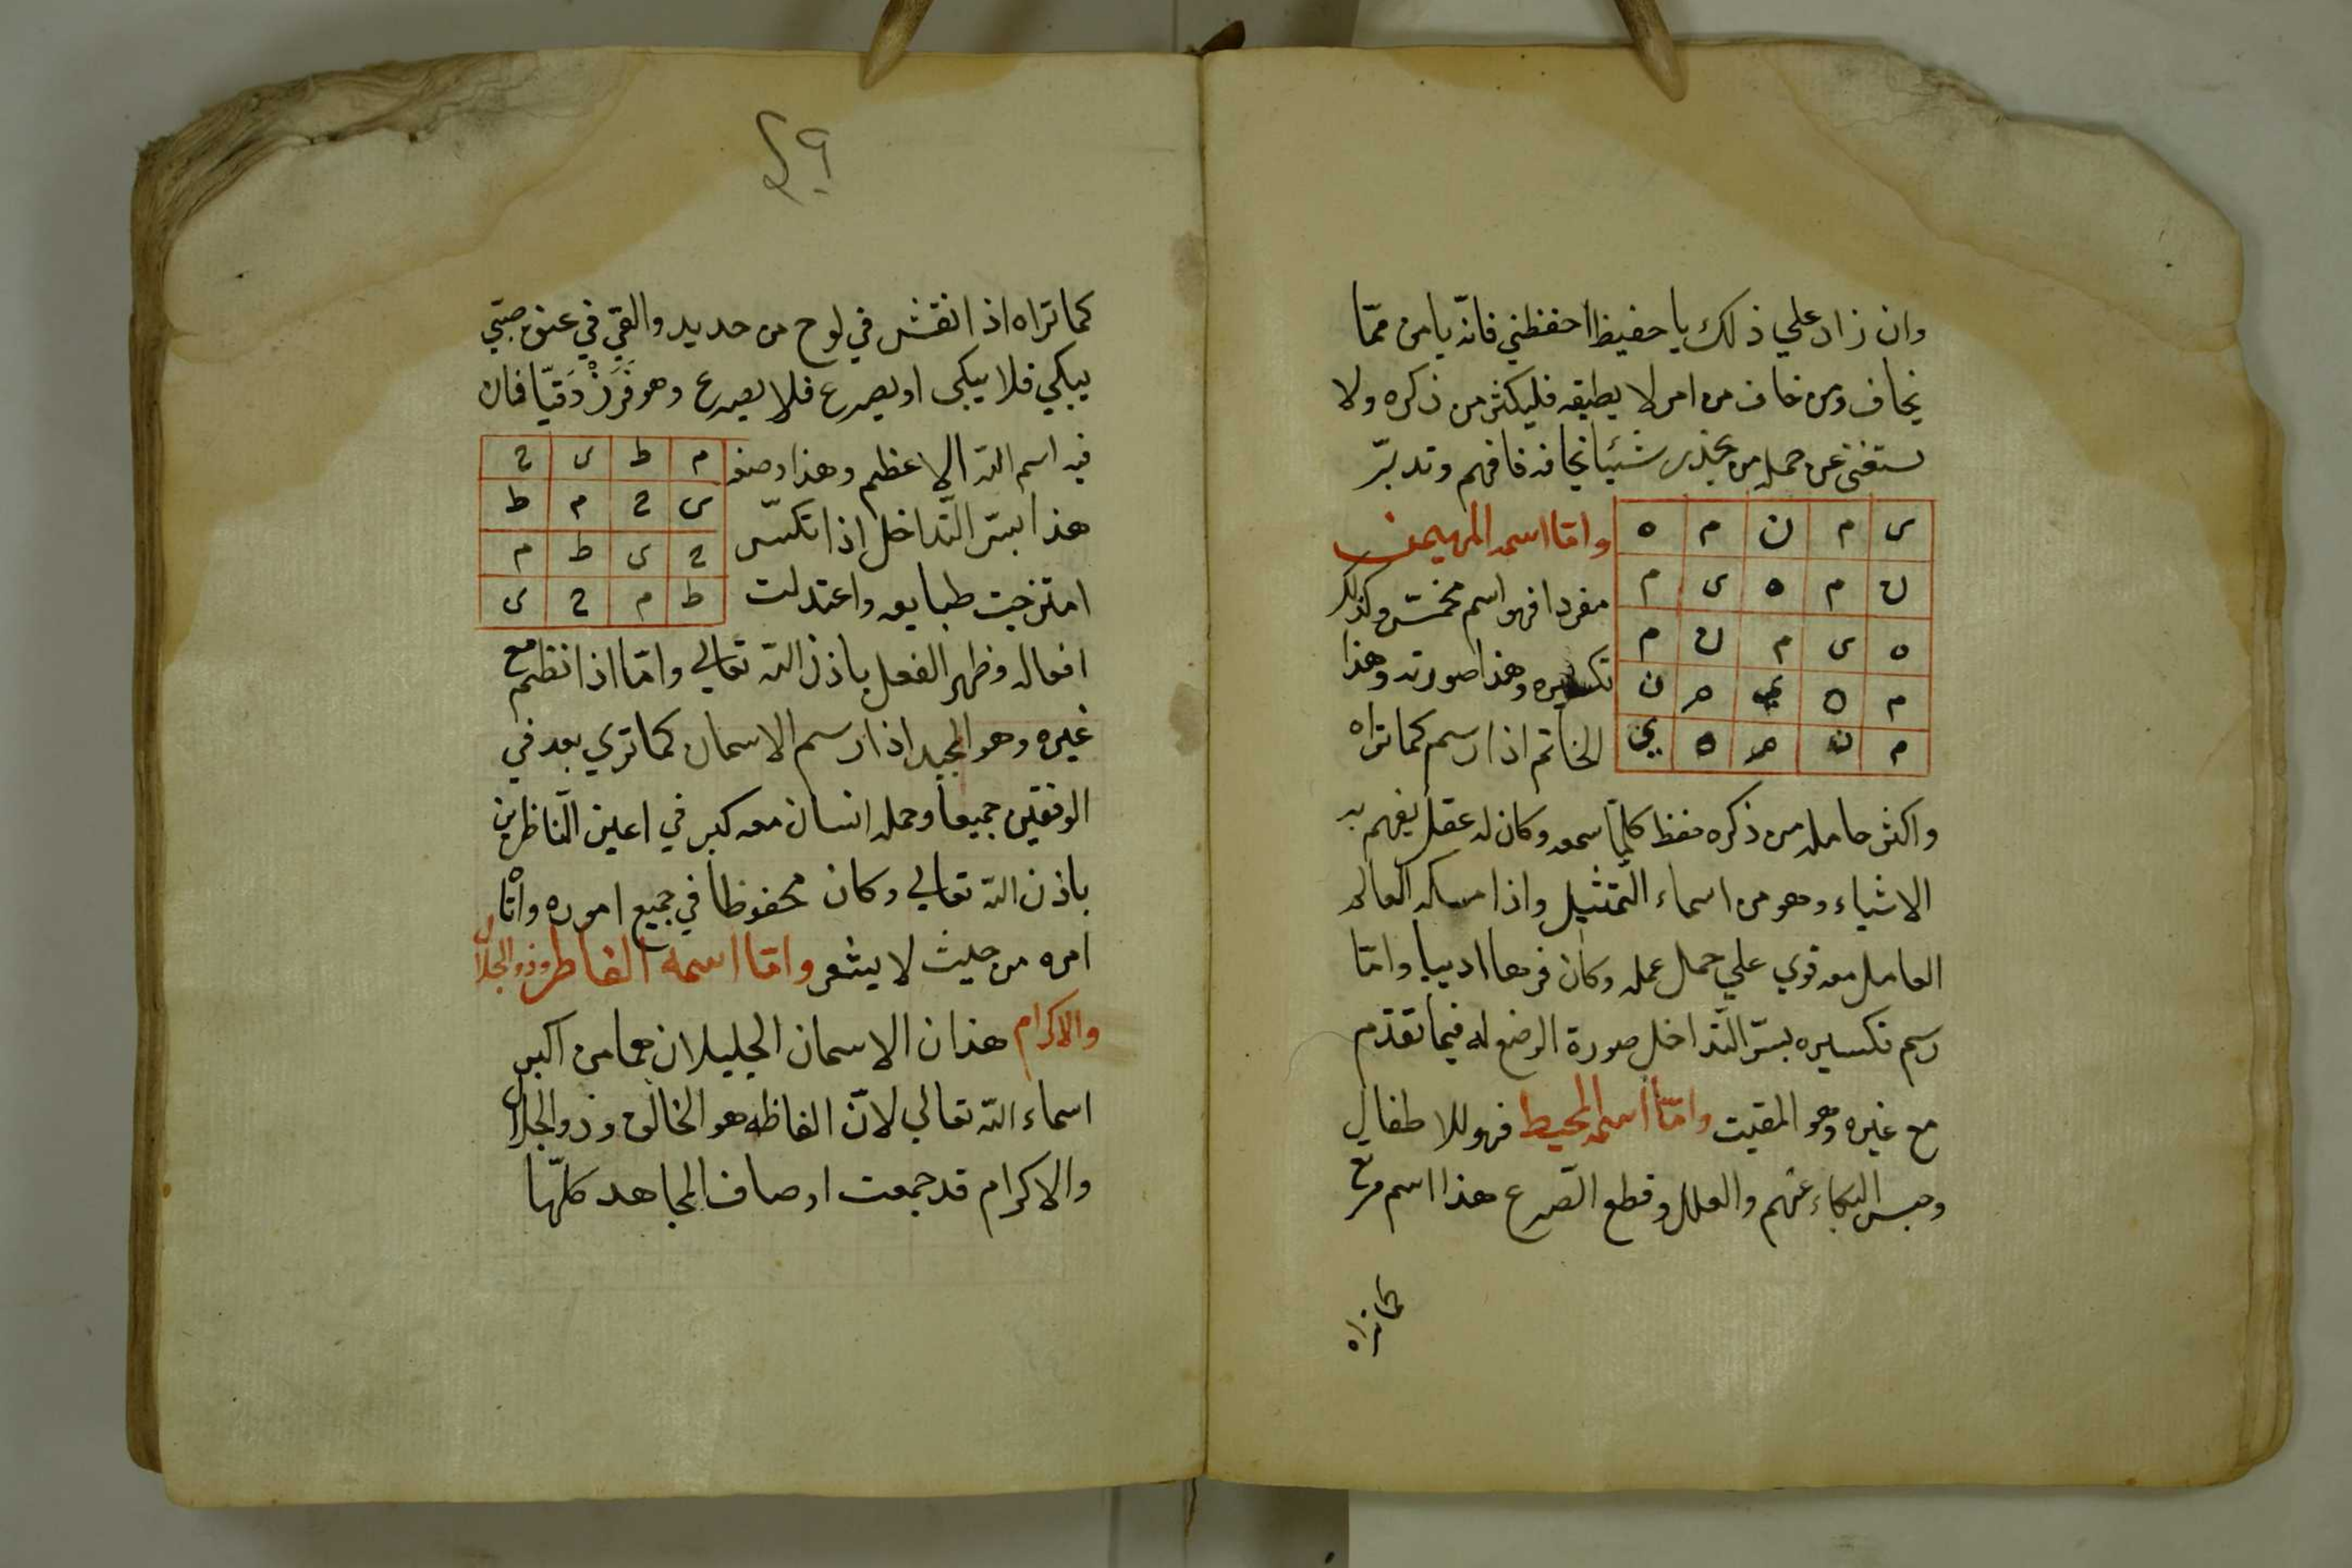 وان زاد علي ذلك يا حفيظ احفظني فانّه يامن ممّا
يخاف ومن خاف من امر لا يطيقه فليكثر من ذكره ولا
يستغنى عن حمله من يحذر شيئا يخافه فافهم وتدبّر
ى م ن م ه
ن م ه ى م
ه ى م ن م
م ه ي م ن
م ن م ه ي
وامّا اسمه المهيمن
مفردا فهو اسم مخمّس وكذلك
تكسيره وهذا صورته وهذا
الخاتم اذا رسم كما تراه
واكثر حامله من ذكره حفظ كلّما سمعه وكان له عقل يفهم به
الاشياء وهو من اسماء التّمثيل واذا مسكه العالم
العامل معه قوي علي حمل عمله وكان فرحا اديبا وامّا
رسم تكسيره بسرّ التّداخل صورة الوضع له فيما تقدّم
مع غيره وهو المقيت وامّا اسمه المحيط فهو للاطفال
وحبس البكاء عنهم والعلل وقطع الصّرع هذا اسم مربّع
كما تراه
٤٩
كما تراه اذا نقش في لوح من حديد والقي في عنق صبيّ
يبكي فلا يبكى او يصرع فلا يصرع وهو فَرَزْدَقيّا فان
فيه اسم اللّه الاعظم وهذا وصفه
هذا بسرّ التّداخل اذا تكسّر
امتزجت طبايعه واعتدلت
م ط ى ح
ى ح م ط
ح ى ط م
ط م ح ى
افعاله وظهر الفعل باذن اللّه تعالي وامّا اذا نظم مع
غيره وهو المجيد اذا رسم الاسمان كما تري بعد في
الوفقين جميعا وحمله انسان معه كبر في اعين النّاظرين
باذن اللّه تعالي وكان محفوظا في جميع اموره واتاه
امره من حيث لا يشعر وامّا اسمه الفاطر وذو الجلال
والاكرام هذان الاسمان الجليلان هما من اكبر
اسماء اللّه تعالي لانّ الفاطر هو الخالق وذو الجلال
والاكرام قد جمعت اوصاف المجاهد كلّها